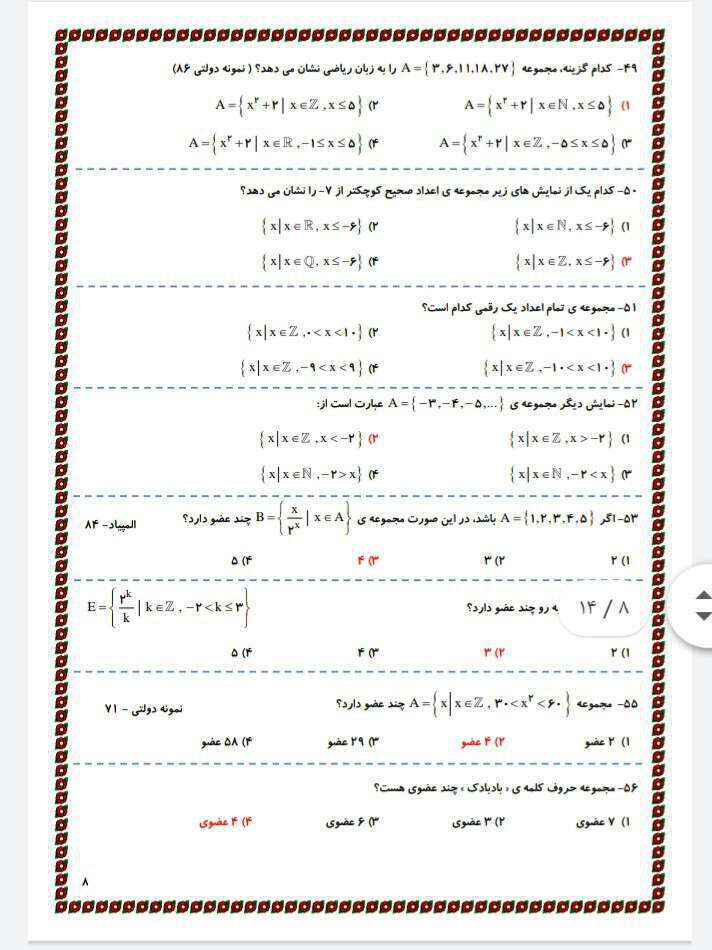 ۴۹- کدام گزینه، مجموعه A = {۳,۶,۱۱,۱۸,۲۷} را به زبان ریاضی نشان می دهد؟ ( نمونه دولتی ۸۶)
۱) A = {x² + ۲ | x ∈ ℕ , x ≤ ۵} ۲) A = {x² + ۲ | x ∈ ℤ , x ≤ ۵}
۳) A = {x² + ۲ | x ∈ ℤ , −۵ ≤ x ≤ ۵} ۴) A = {x² + ۲ | x ∈ ℝ , −۱ ≤ x ≤ ۵}
۵۰- کدام یک از نمایش های زیر مجموعه ی اعداد صحیح کوچکتر از ۷- را نشان می دهد؟
۱) {x | x ∈ ℕ, x ≤ −۶} ۲) {x | x ∈ ℝ, x ≤ −۶}
۳) {x | x ∈ ℤ, x ≤ −۶} ۴) {x | x ∈ ℚ, x ≤ −۶}
۵۱- مجموعه ی تمام اعداد یک رقمی کدام است؟
۱) {x | x ∈ ℤ , −۱ < x < ۱۰} ۲) {x | x ∈ ℤ , ۰ < x < ۱۰}
۳) {x | x ∈ ℤ , −۱۰ < x < ۱۰} ۴) {x | x ∈ ℤ , −۹ < x < ۹}
۵۲- نمایش دیگر مجموعه ی A = {−۳,−۴,−۵,...} عبارت است از:
۱) {x | x ∈ ℤ , x > −۲} ۲) {x | x ∈ ℤ , x < −۲}
۳) {x | x ∈ ℕ , −۲ < x} ۴) {x | x ∈ ℕ , −۲ > x}
۵۳- اگر A = {۱,۲,۳,۴,۵} باشد، در این صورت مجموعه ی B = {x/۲ˣ | x ∈ A} چند عضو دارد؟ المپیاد- ۸۴
۱) ۲ ۲) ۳ ۳) ۴ ۴) ۵
ه رو چند عضو دارد؟ E = {۲ᵏ/k | k ∈ ℤ , −۲ < k ≤ ۳}
۱۴ / ۸
۱) ۲ ۲) ۳ ۳) ۴ ۴) ۵
۵۵- مجموعه A = {x | x ∈ ℤ , ۳۰ < x² < ۶۰} چند عضو دارد؟ نمونه دولتی - ۷۱
۱) ۲ عضو ۲) ۴ عضو ۳) ۲۹ عضو ۴) ۵۸ عضو
۵۶- مجموعه حروف کلمه ی « بادبادک » چند عضوی هست؟
۱) ۷ عضوی ۲) ۳ عضوی ۳) ۶ عضوی ۴) ۴ عضوی
۸